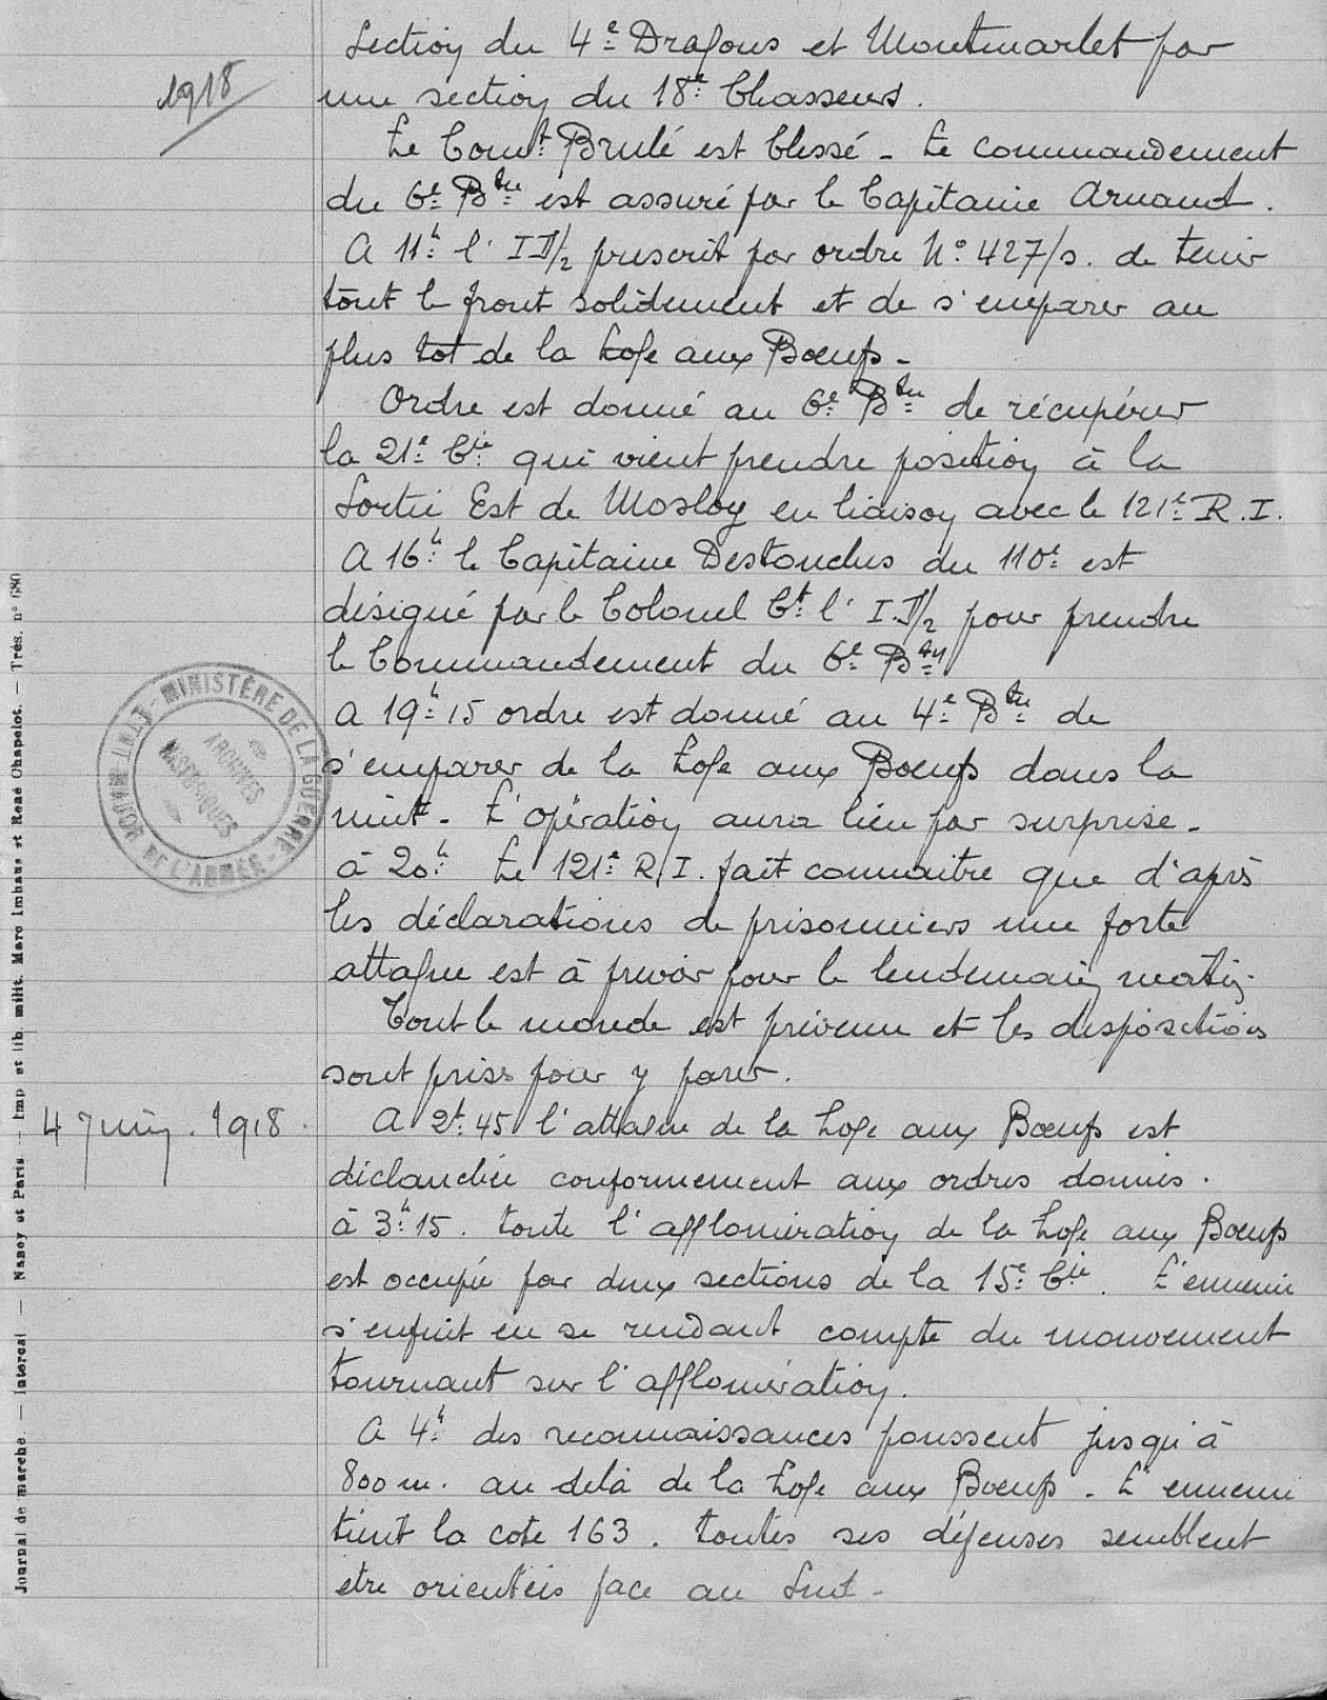 Section du 4e Dragons et Montmarlet par
1918
une section du 18e Chasseurs.
Le Comt Brulé est blessé - Le commandement
du 6e Bton est assuré par le Capitaine Arnaud.
A 11h l'ID/2 prescrit par ordre No 427/s. de tenir
tout le front solidement et de s'emparer au
plus tot de la Loge aux Boeufs -
Ordre est donné au 6e Bton de récupérer
la 21e Cie qui vient prendre position à la
Sortie Est de Mosloy en liaison avec le 121e R.I.
A 16h le Capitaine Destouches du 110e est
désigné par le Colonel Ct l'I.D/2 pour prendre
le Commandement du 6e Bton
A 19h15 ordre est donné au 4e Bton de
s'emparer de la Loge aux Boeufs dans la
nuit - L'opération aura lieu par surprise -
à 20h Le 121e R.I. fait connaitre que d'après
les déclarations de prisonniers une forte
attaque est à prevoir pour le lendemain matin.
Tout le monde est prévenu et les dispositions
sont prises pour y parer.
4 Juin. 1918.
A 2h45 l'attaque de la Loge aux Boeufs est
déclanchée conformement aux ordres donnés.
à 3h15. toute l'agglomération de la Loge aux Boeufs
est occupée par deux sections de la 15e Cie. L'ennemi
s'enfuit en se rendant compte du mouvement
tournant sur l'agglomération.
A 4h des reconnaissances poussent jusqu'à
800m. au delà de la Loge aux Boeufs - L'ennemi
tient la cote 163. toutes ses défenses semblent
etre orientées face au Sud -
MINISTÈRE DE LA GUERRE - ÉTAT-MAJOR DE L'ARMÉE
ARCHIVES
HISTORIQUES
Journal de marche — Intercal — Nancy et Paris — Imp et lib. milit. Marc Imhaus et René Chapelot. — Trés. n° 680